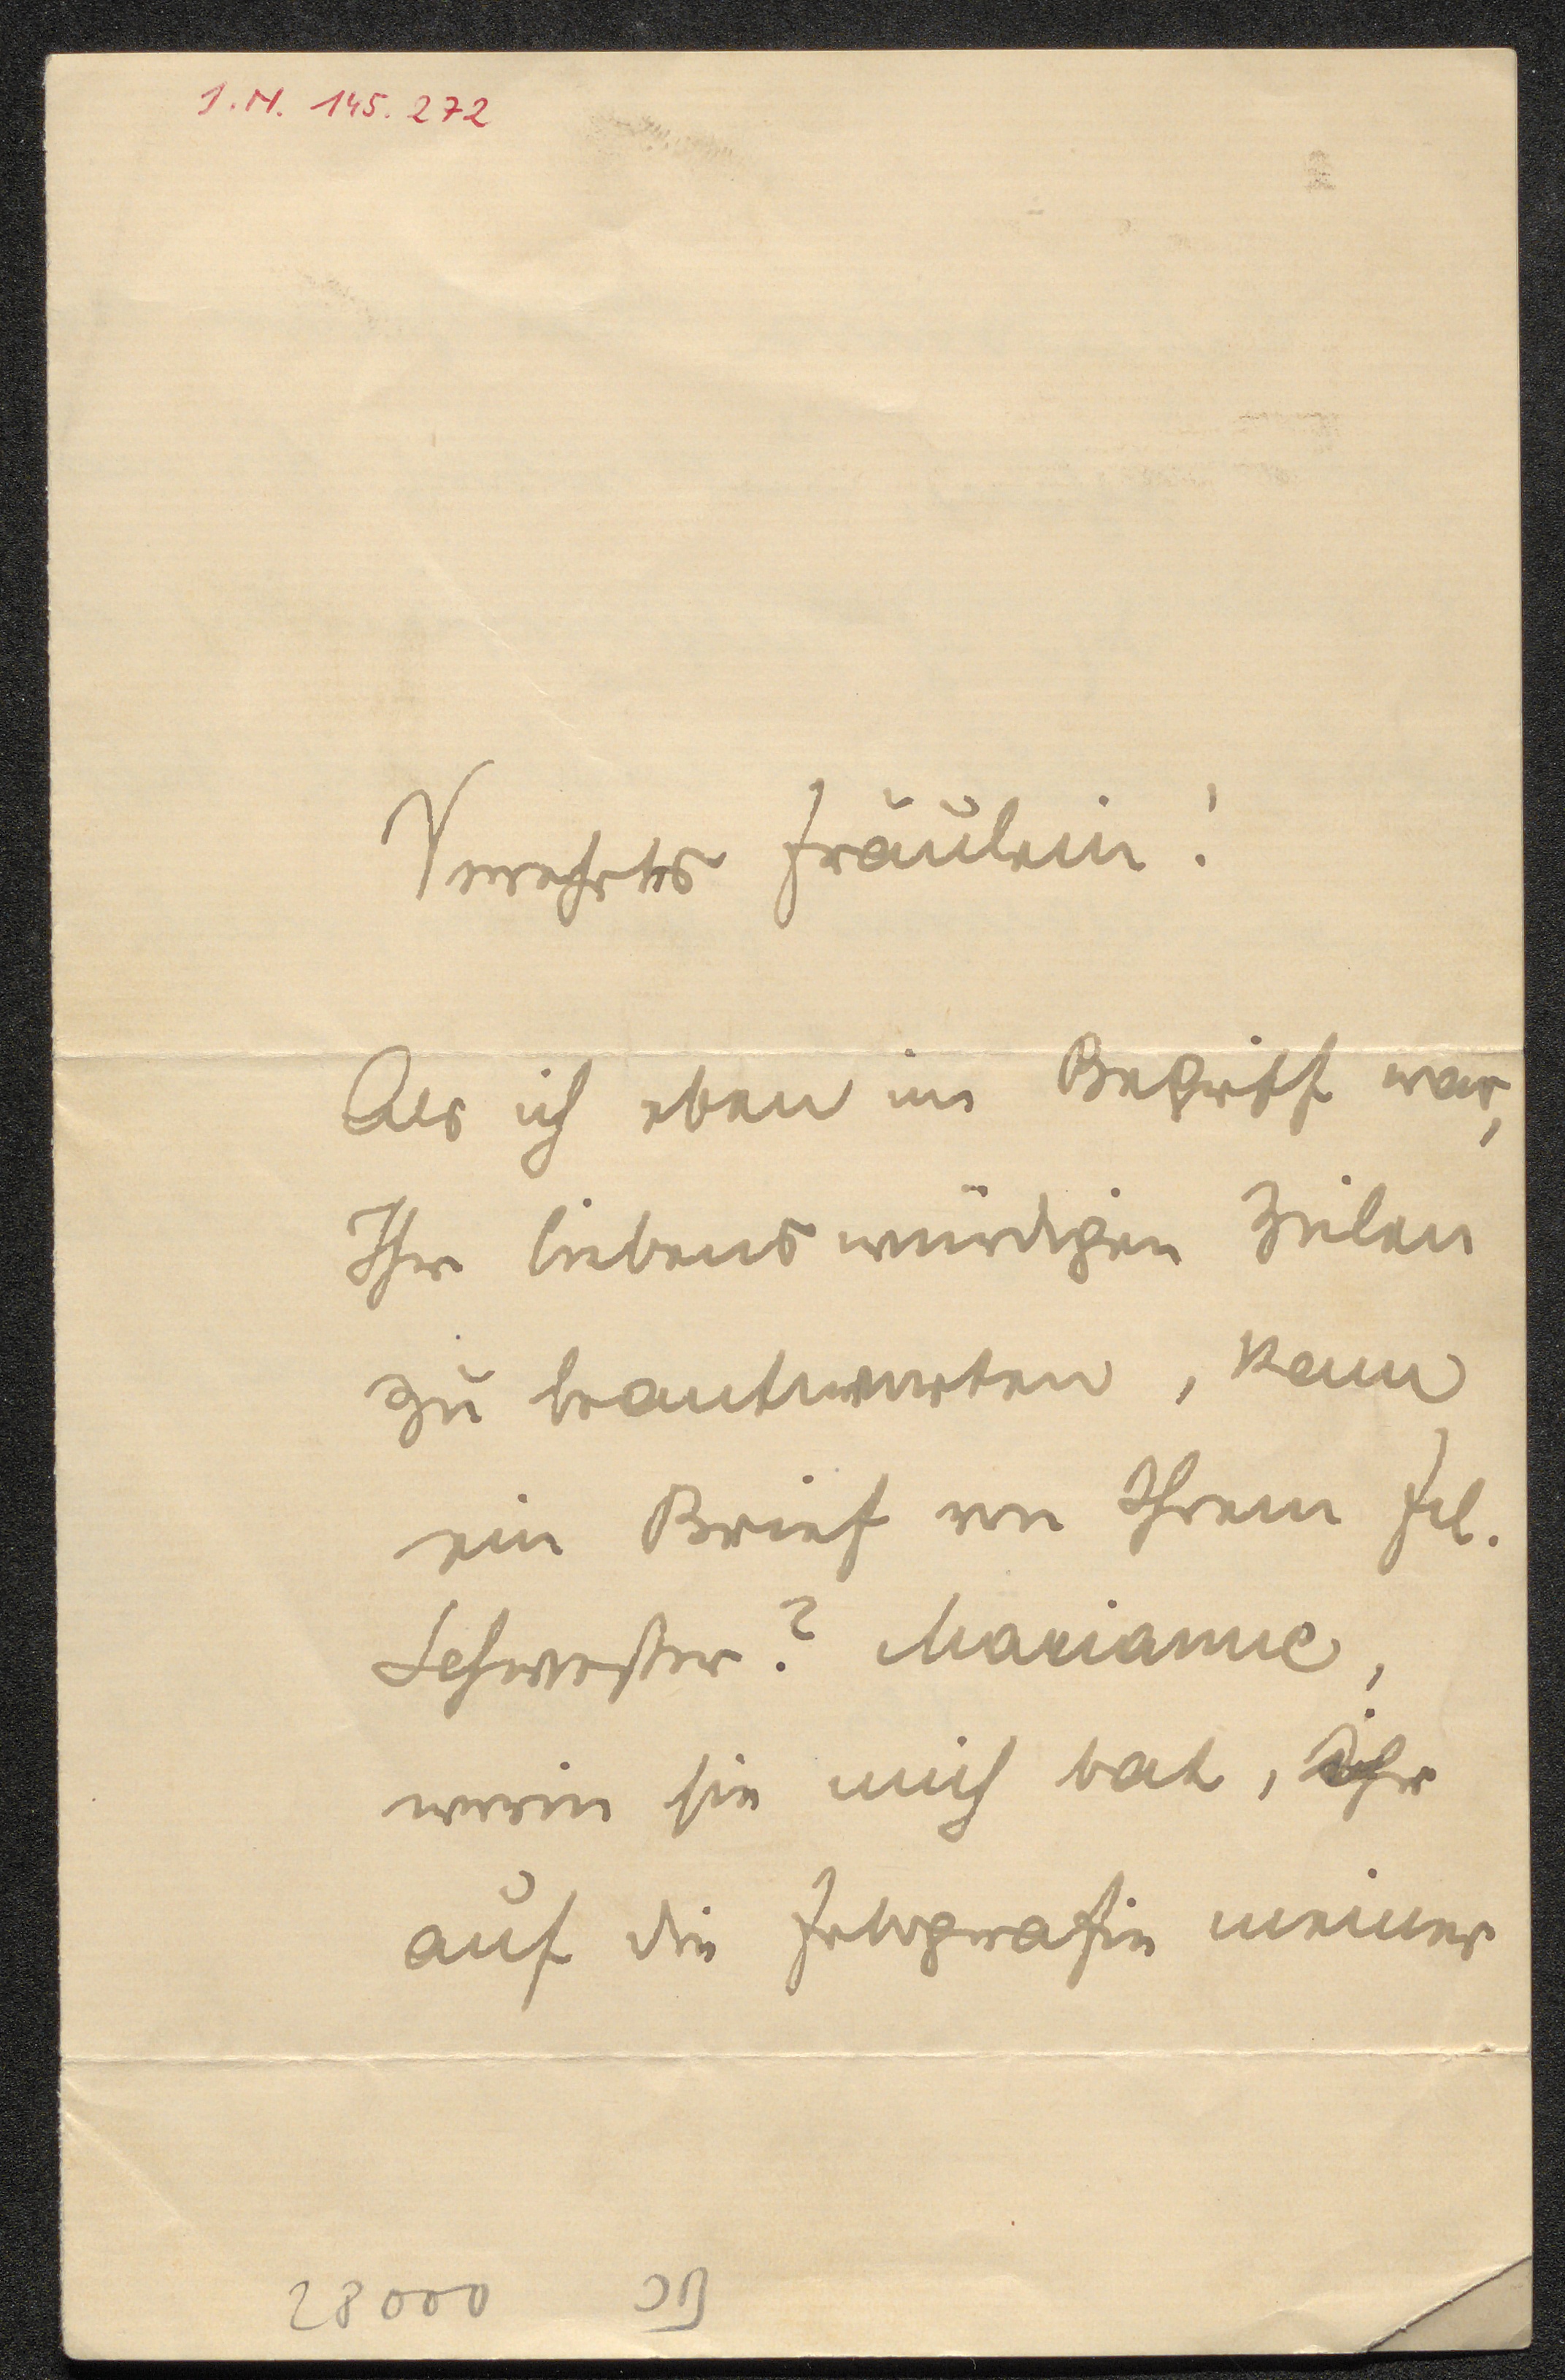 I.N. 145.272
Verehrtes Fräulein!
Als ich eben im Begriff war,
Ihre liebenswürdigen Zeilen
zu beantworten, kam
ein Brief von Ihrem Frl.
Schwester? Marianne,
worin sie mich bat, ihr
auf die Fotografie meiner
28000